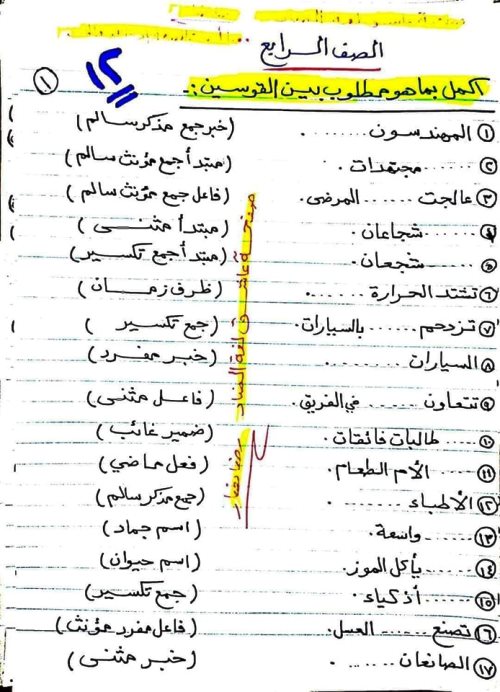 الصف الرابع
١٢
١
اكمل بما هو مطلوب بين القوسين :-
١ المهندسون ........ (خبر جمع مذكر سالم)
٢ ...... مجتهدات . (مبتدأ جمع مؤنث سالم)
٣ عالجت ...... المرضى . (فاعل جمع مؤنث سالم)
٤ ...... شجاعان . (مبتدأ مثنى)
٥ ...... شجعان . (مبتدأ جمع تكسير)
٦ تشتد الحرارة ....... (ظرف زمان)
٧ تزدحم ...... بالسيارات . (جمع تكسير)
٨ السيارات ........ (خبر مفرد)
٩ تتعاون ...... في الفريق . (فاعل مثنى)
١٠ ..... طالبات فائقات . (ضمير غائب)
١١ ..... الأم الطعام . (فعل ماضي)
١٢ الأطباء ....... (جمع مذكر سالم)
١٣ ...... واسعة . (اسم جماد)
١٤ ...... يأكل الموز . (اسم حيوان)
١٥ ...... أذكياء . (جمع تكسير)
١٦ تصنع ...... العسل . (فاعل مفرد مؤنث)
١٧ الصانعان ...... . (خبر مثنى)
صفحة عاشق لغة الضاد